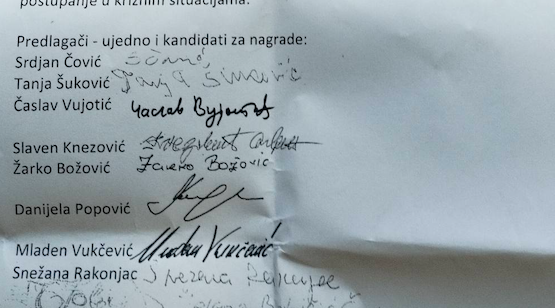 postupanje u kriznim situacijama.
Predlagači - ujedno i kandidati za nagrade:
Srdjan Čović
Tanja Šuković Tanja Šuković
Časlav Vujotić Часлав Вујотић
Slaven Knezović
Žarko Božović Žarko Božović
Danijela Popović
Mladen Vukčević Mladen Vukčević
Snežana Rakonjac Snežana Rakonjac